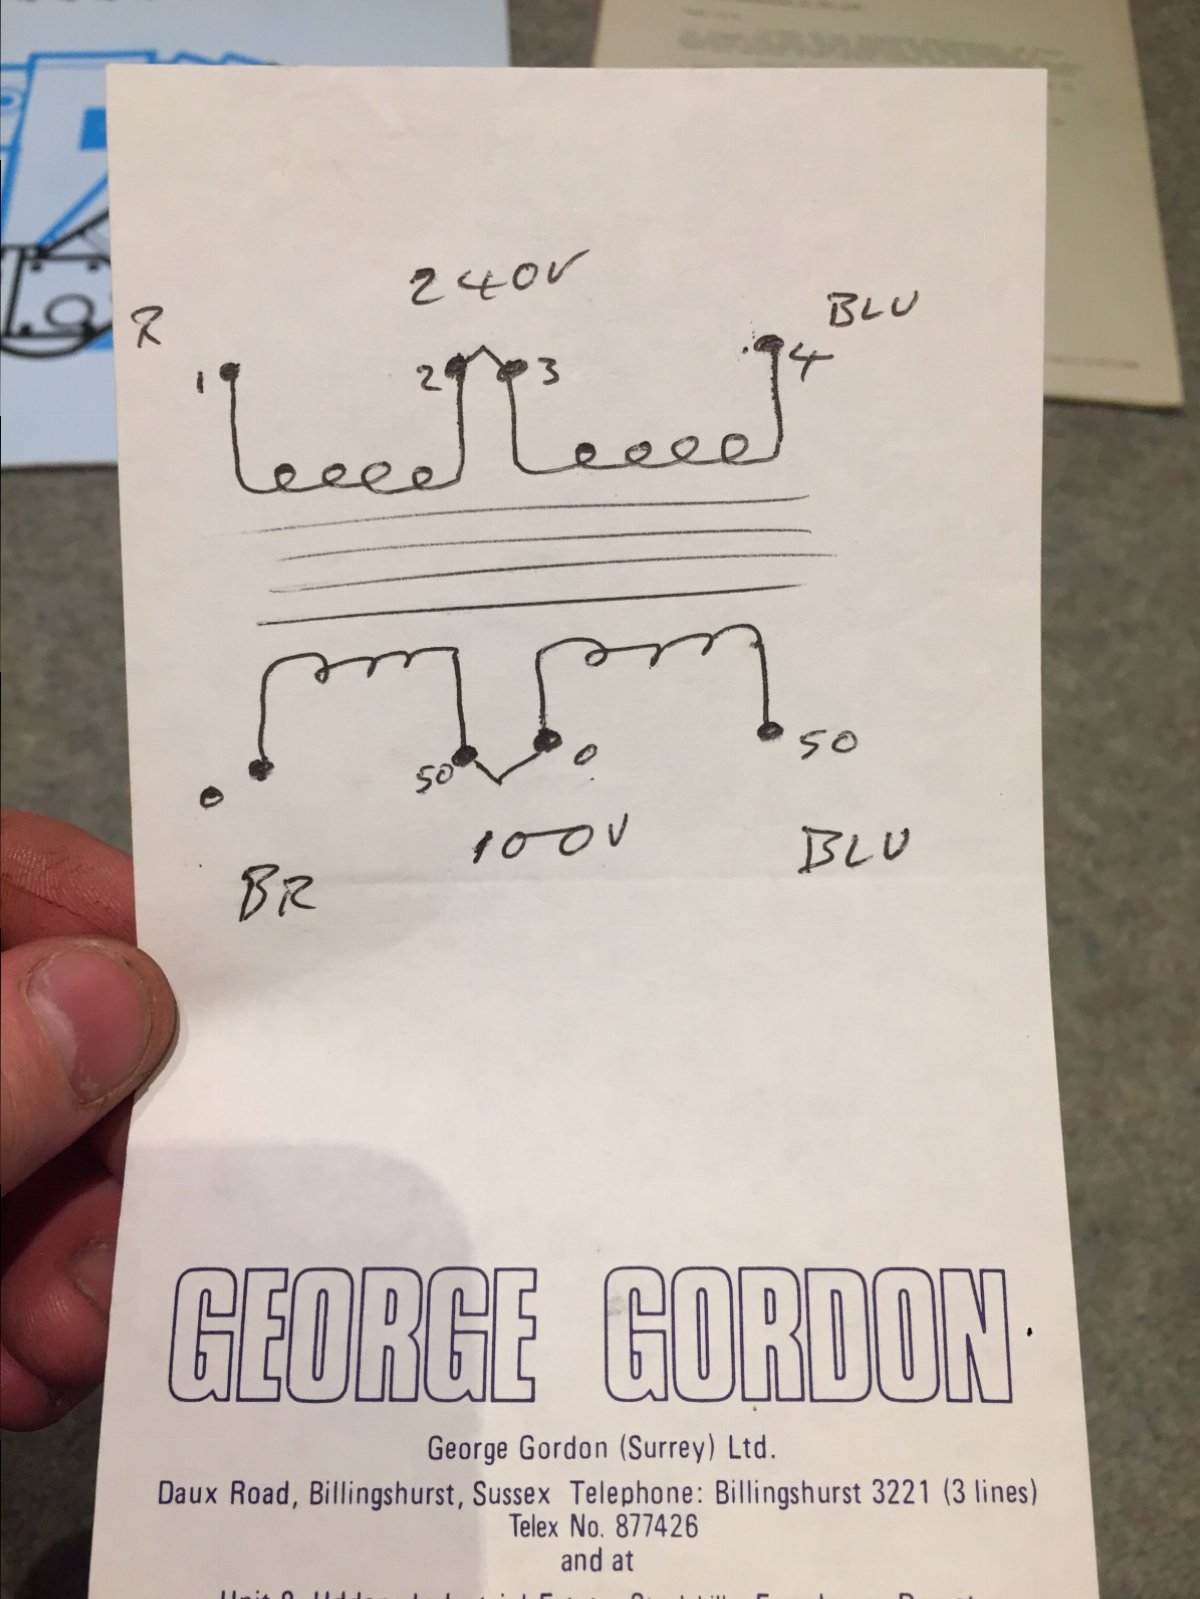 240V
R BLU
1 2 3 4
0 50 0 50
100V
BR BLU
GEORGE GORDON
George Gordon (Surrey) Ltd.
Daux Road, Billingshurst, Sussex Telephone: Billingshurst 3221 (3 lines)
Telex No. 877426
and at